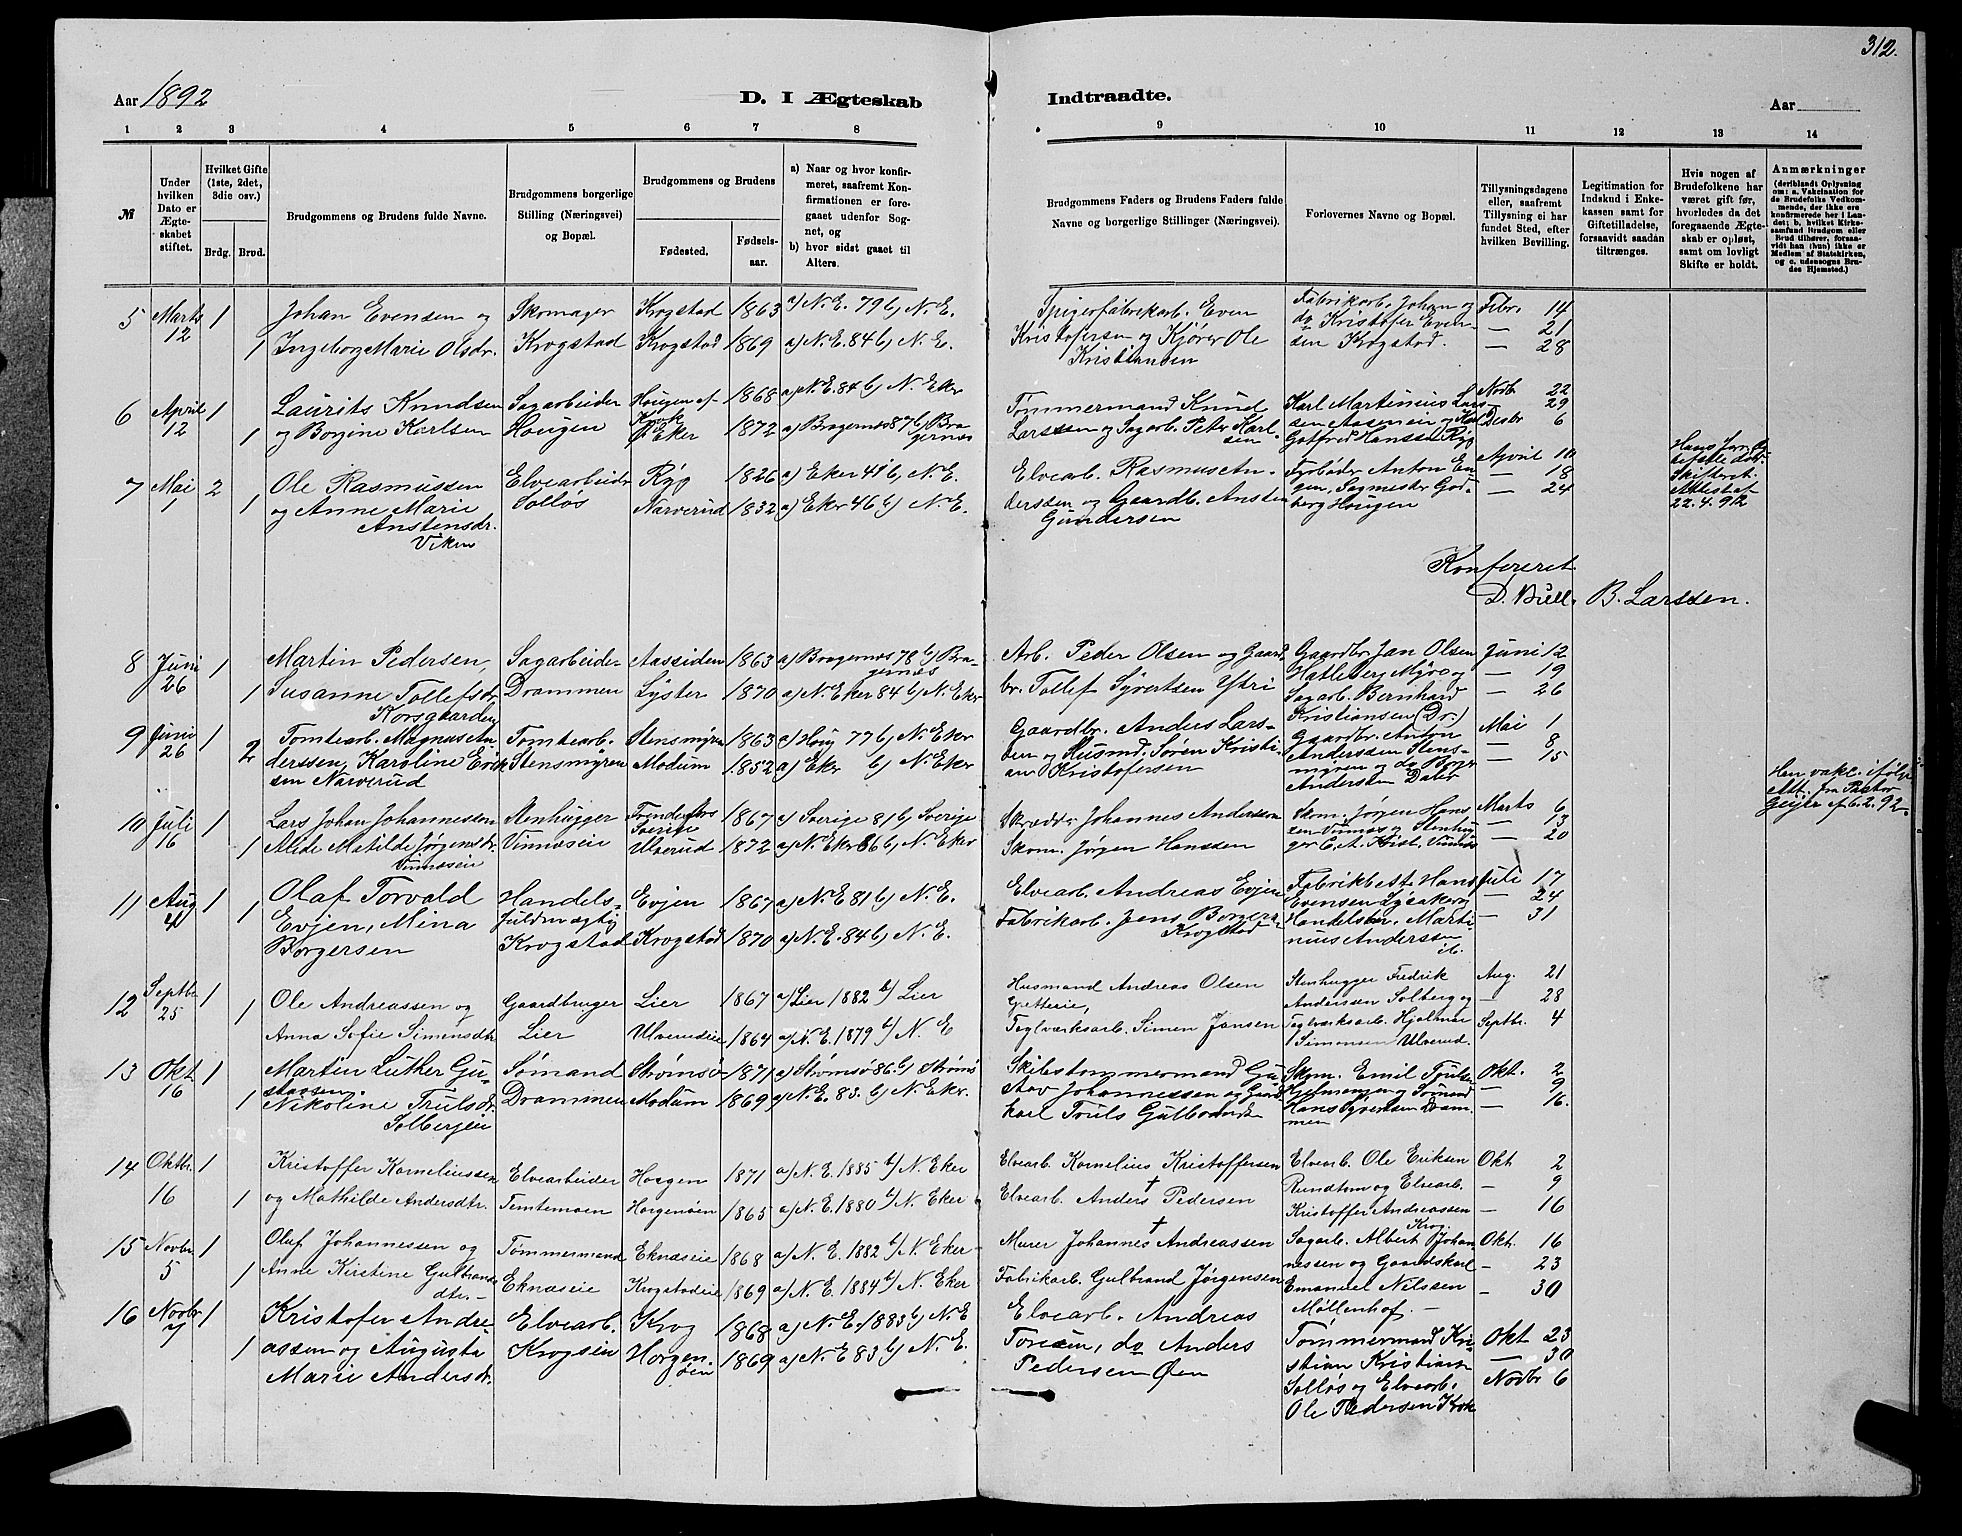 312.
Aar 1892
D. I Ægteskab
Indtraadte.
Aar
1 2 3 4 5 6 7 8 9 10 11 12 13 14
№
Under hvilken Dato er Ægteskabet stiftet.
Hvilket Gifte (1ste, 2det, 3die osv.)
Brdg. Brud.
Brudgommens og Brudens fulde Navne.
Brudgommens borgerlige Stilling (Næringsvei) og Bopæl.
Brudgommens og Brudens
Fødested.
Fødselsaar.
a) Naar og hvor konfirmeret, saafremt Konfirmationen er foregaaet udenfor Sognet, og
b) hvor sidst gaaet til Alters.
Brudgommens Faders og Brudens Faders fulde Navne og borgerlige Stillinger (Næringsvei).
Forlovernes Navne og Bopæl.
Tillysningsdagene eller, saafremt Tillysning ei har fundet Sted, efter hvilken Bevilling.
Legitimation for Indskud i Enkekassen samt for Giftetilladelse, forsaavidt saadan tiltrænges.
Hvis nogen af Brudefolkene har været gift før, hvorledes da det foregaaende Ægteskab er opløst, samt om lovligt Skifte er holdt.
Anmærkninger
(deriblandt Oplysning om: a. Vakcination for de Brudefolks Vedkommende, der ikke ere konfirmerede her i Landet; b. hvilket Kirkesamfund Brudgom eller Brud tilhører, forsaavidt han (hun) ikke er Medlem af Statskirken, og c. udensogns Brudes Hjemsted.)
5 Marts 12 1 Johan Evensen og Skomager Krogstad 1863 a) N. E. 79 b) N. E.
1 Ingeborg Marie Olsdr. Krogstad Krogstad 1869 a) N. E. 84 b) N. E.
Spigerfabrikarb. Even Kristofersen og Kjører Ole Kristiansen
Fabrikarb. Johan og do Kristofer Evensen Krogstad.
Febr. 14
— 21
— 28
6 April 12 1 Laurits Knudsen Sagarbeider Hougen af 1868 a) N. E. 84 b) N. Eker
1 og Borgine Karlsen Hougen Eker 1872 a) Bragernes 87 b) Bragernes
Tømmermand Knud Larssen og Sagarb. Peter Karlsen.
Karl Martinius Larssen Aasen og Karl Gotfred Hanssen Ryg
Novb 22
29
Decbr 6
7 Mai 1 2 Ole Rasmussen Elvearbeider Ryg 1826 a) Eker 41 b) N. E.
1 og Anne Marie Anstensdr. Viken Solløs Narverud 1832 a) Eker 46 b) N. E.
Elvearb. Rasmus Anderssen og Gaardb. Ansten Gundersen
Fyrbøder Anton Engen, Sagmester Godberg Hougen
April 10
— 18
— 24
Skifteret.
Attest af 22. 4. 92
Konfereret
D. Bull. B. Larssen.
8 Juni 26 1 Martin Pedersen, Sagarbeider Aassiden 1863 a) Bragernes 78 b) Bragernes
1 Susanne Tollefsdr. Korsgaarden Drammen Lyster 1870 a) N. Eker 84 b) N. Eker
Arb. Peder Olsen og Gaardbr. Tollef Syvertsen Ytri
Gaardbr. Jan Olsen Hatleberg Myre og Sagarb. Bernhard Kristiansen (Dr.)
Juni 12
— 19
— 26
9 Juni 26 1 Tomtearb. Magnus Anderssen, Karoline Eriksen Narverud Tomtearb. Stensmyren 1863 a) Houg 77 b) N. Eker
2 Stensmyren Modum 1852 a) Eker b) N. Eker
Gaardbr. Anders Larssen og Husmd. Søren Kristian Kristofersen
Gaardbr. Anton Anderssen Stensmyren og do Borger Andersen Daler
Mai 1
— 8
— 15
10 Juli 16 1 Lars Johan Johannessen Stenhugger Sverige 1867 a) Sverige 81 b) Sverige
1 Alide Matilde Jørgensdr. Vinnæseie Vinnæseie Ulverud 1872 a) N. Eker 86 b) N. Eker
Skrædder Johannes Anderssen
Skom. Jørgen Hanssen
Skom. Jørgen Hanssen Vinnæs og Stenhugger C. A. Krist. Vinnæs
Marts 6
— 13
— 20
Han vakc. ifølge Att. fra Pastor Geijer af 6. 2. 92.
11 Aug 4 1 Olaf Torvald Handels- Evjen 1867 a) N. E. 81 b) N. E.
1 Evjen, Mina Borgersen fuldmægtig Krogstad Krogstad 1870 a) N. E. 84 b) N. E.
Elvearb. Andreas Evjen
Fabrikarb. Jens Borgersen Krogstad
Fabrikbest. Hans Evensen Lysaker og Handelsbr. Martinius Anderssen ib.
Juli 17
— 24
— 31
12 Septbr 25 1 Ole Andreassen og Gaardbruger Lier 1867 a) Lier 1882 b) Lier
1 Anna Sofie Simensdtr Lier Ulverudeie 1864 a) N. E. 1879 b) N. E
Husmand Andreas Olsen
Teglværksarb. Simen Jansen
Stenhugger Fredrik Andersen Solberg og Teglværksarb. Hjalmar Simonsen Ulverud
Aug. 21
— 28
Septbr. 4
13 Okt 16 1 Martin Luther Gustavsen. Sømand Strømsø 1871 a) Strømsø 86 b) Strømsø
1 Nikoline Trulsdr. Solbergeie Drammen Modum 1869 a) N. E. 83. b) N. Eker.
Skibstømmermand Gustav Johannessen og Gaardkarl Truls Gulbrands.
Skom. Emil Trulsen Hjelmengen og Sømand Hans Syvertsen Drammen
Okt. 2
— 9
— 16.
14 Oktbr. 16 1 Kristoffer Korneliussen Elvearbeider Horgen 1871 a) N. E. 1885 b) N. Eker
1 og Mathilde Andersdtr. Temtemoen Horgenøen 1865 a) N. E. 1880 b) N. Eker
Elvearb. Kornelius Kristoffersen
Elvearb. Anders † Pedersen
Elvearb. Ole Eriksen Rundtom og Elvearb. Kristoffer Andreassen Krog.
Okt 2
— 9
— 16
15 Novbr 5 1 Oluf Johannessen og Tømmermand Eknæseie 1868 a) N. E. 1882 b) N. Eker
1 Anne Kirstine Gulbrandsdtr. Eknæseie Krogstadeie 1869 a) N. E. 1884 b) N. Eker
Murer Johannes † Andreassen
Fabrikarb. Gulbrand Jørgensen
Sagarb. Albert Johannessen og Gaardskarl Emanuel Nilssen Møllenhof. —
Okt. 16
— 23
— 30
16 Novbr 7 1 Kristofer Andreassen og Augusta Marie Andersdr. Elvearb. Krog 1868 a) N. E. 1883 b) N. E
1 Krogseie Horgenøen 1869 a) N. E. 83 b) N. E.
Elvearb. Andreas Toresen, do Anders Pedersen Øen
Tømmermand Kristian Kristiansen Solløs og Elvearb. Ole Pedersen Krok
Okt 23
— 30
Novbr 6